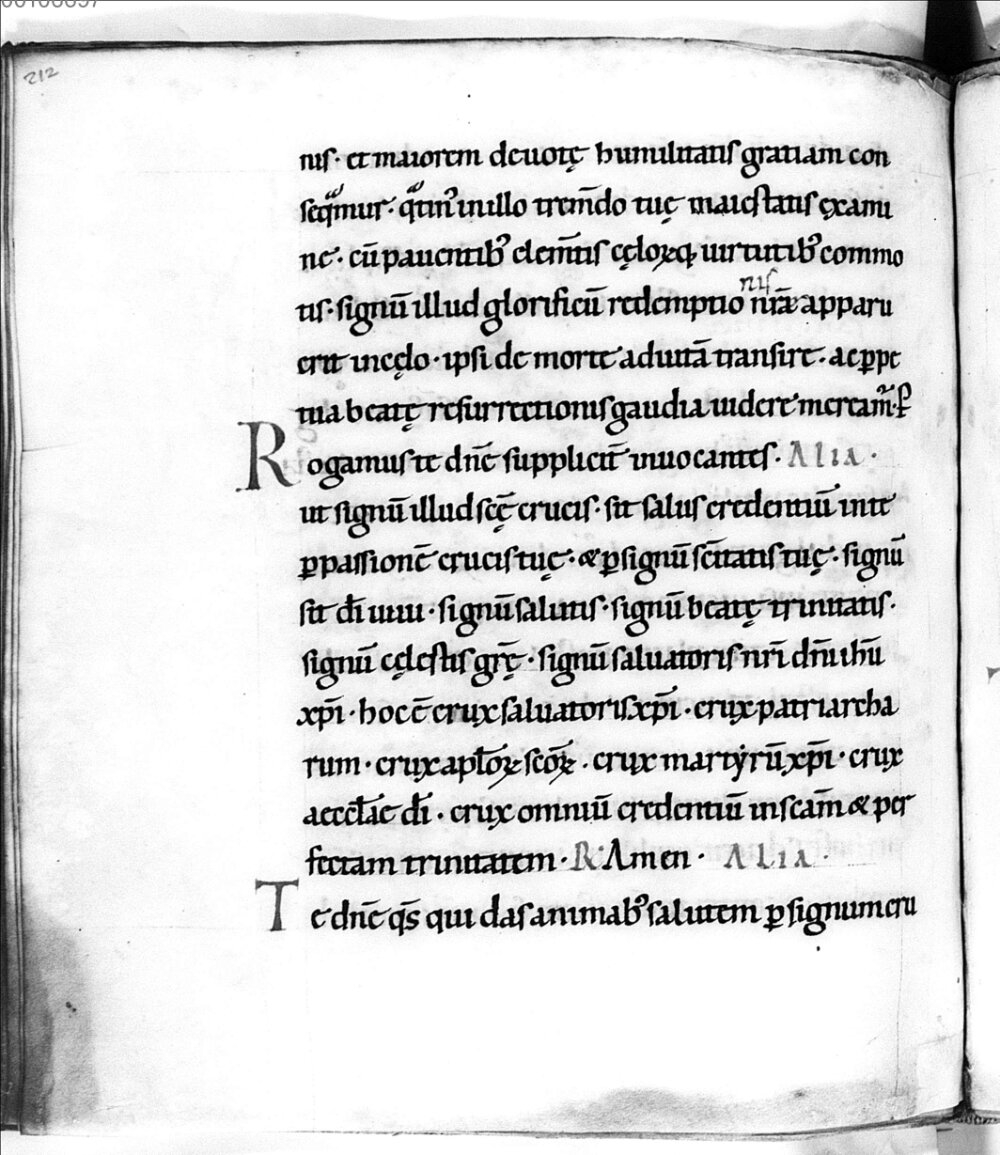 212
tus· et maiorem deuotę humilitatis gratiam con
seqͣmur· qͣtin᷒ in illo trem̄do tuę maiestatis exami
ne· cū pauentib᷒ elem̄tis cęloꝝq; uirtutib᷒ commo
tis· signū illud glorificū redemptio nis nr̄ae apparu
erit in cęlo· ipsi de morte ad uitā transire· ac ꝑpe
tua beatę resurrectionis gaudia uidere meream̄· ꝑ
Rogamus te dn̄e supplicit̄ inuocantes· ALIA·
ut signū illud scę̄ crucis· sit salus credentiū in te
ꝑ passionē crucis tuę· & ꝑ signū sc̄itatis tuę· signū
sit dī uiui· signū salutis· signū beatę trinitatis·
signū cęlestis grę̄· signū saluatoris nr̄i dn̄i ihū
xpī· hoc ē crux saluatoris xpī· crux patriarcha
rum· crux apl̄oꝝ scōꝝ· crux martẏrū xpī· crux
aeccl̄ae dī· crux omniū credentiū in scam̄ & per
fectam trinitatem· R᷒ Amen· ALIA·
Te dn̄e qs̄ qui das animab᷒ salutem ꝑ signum cru